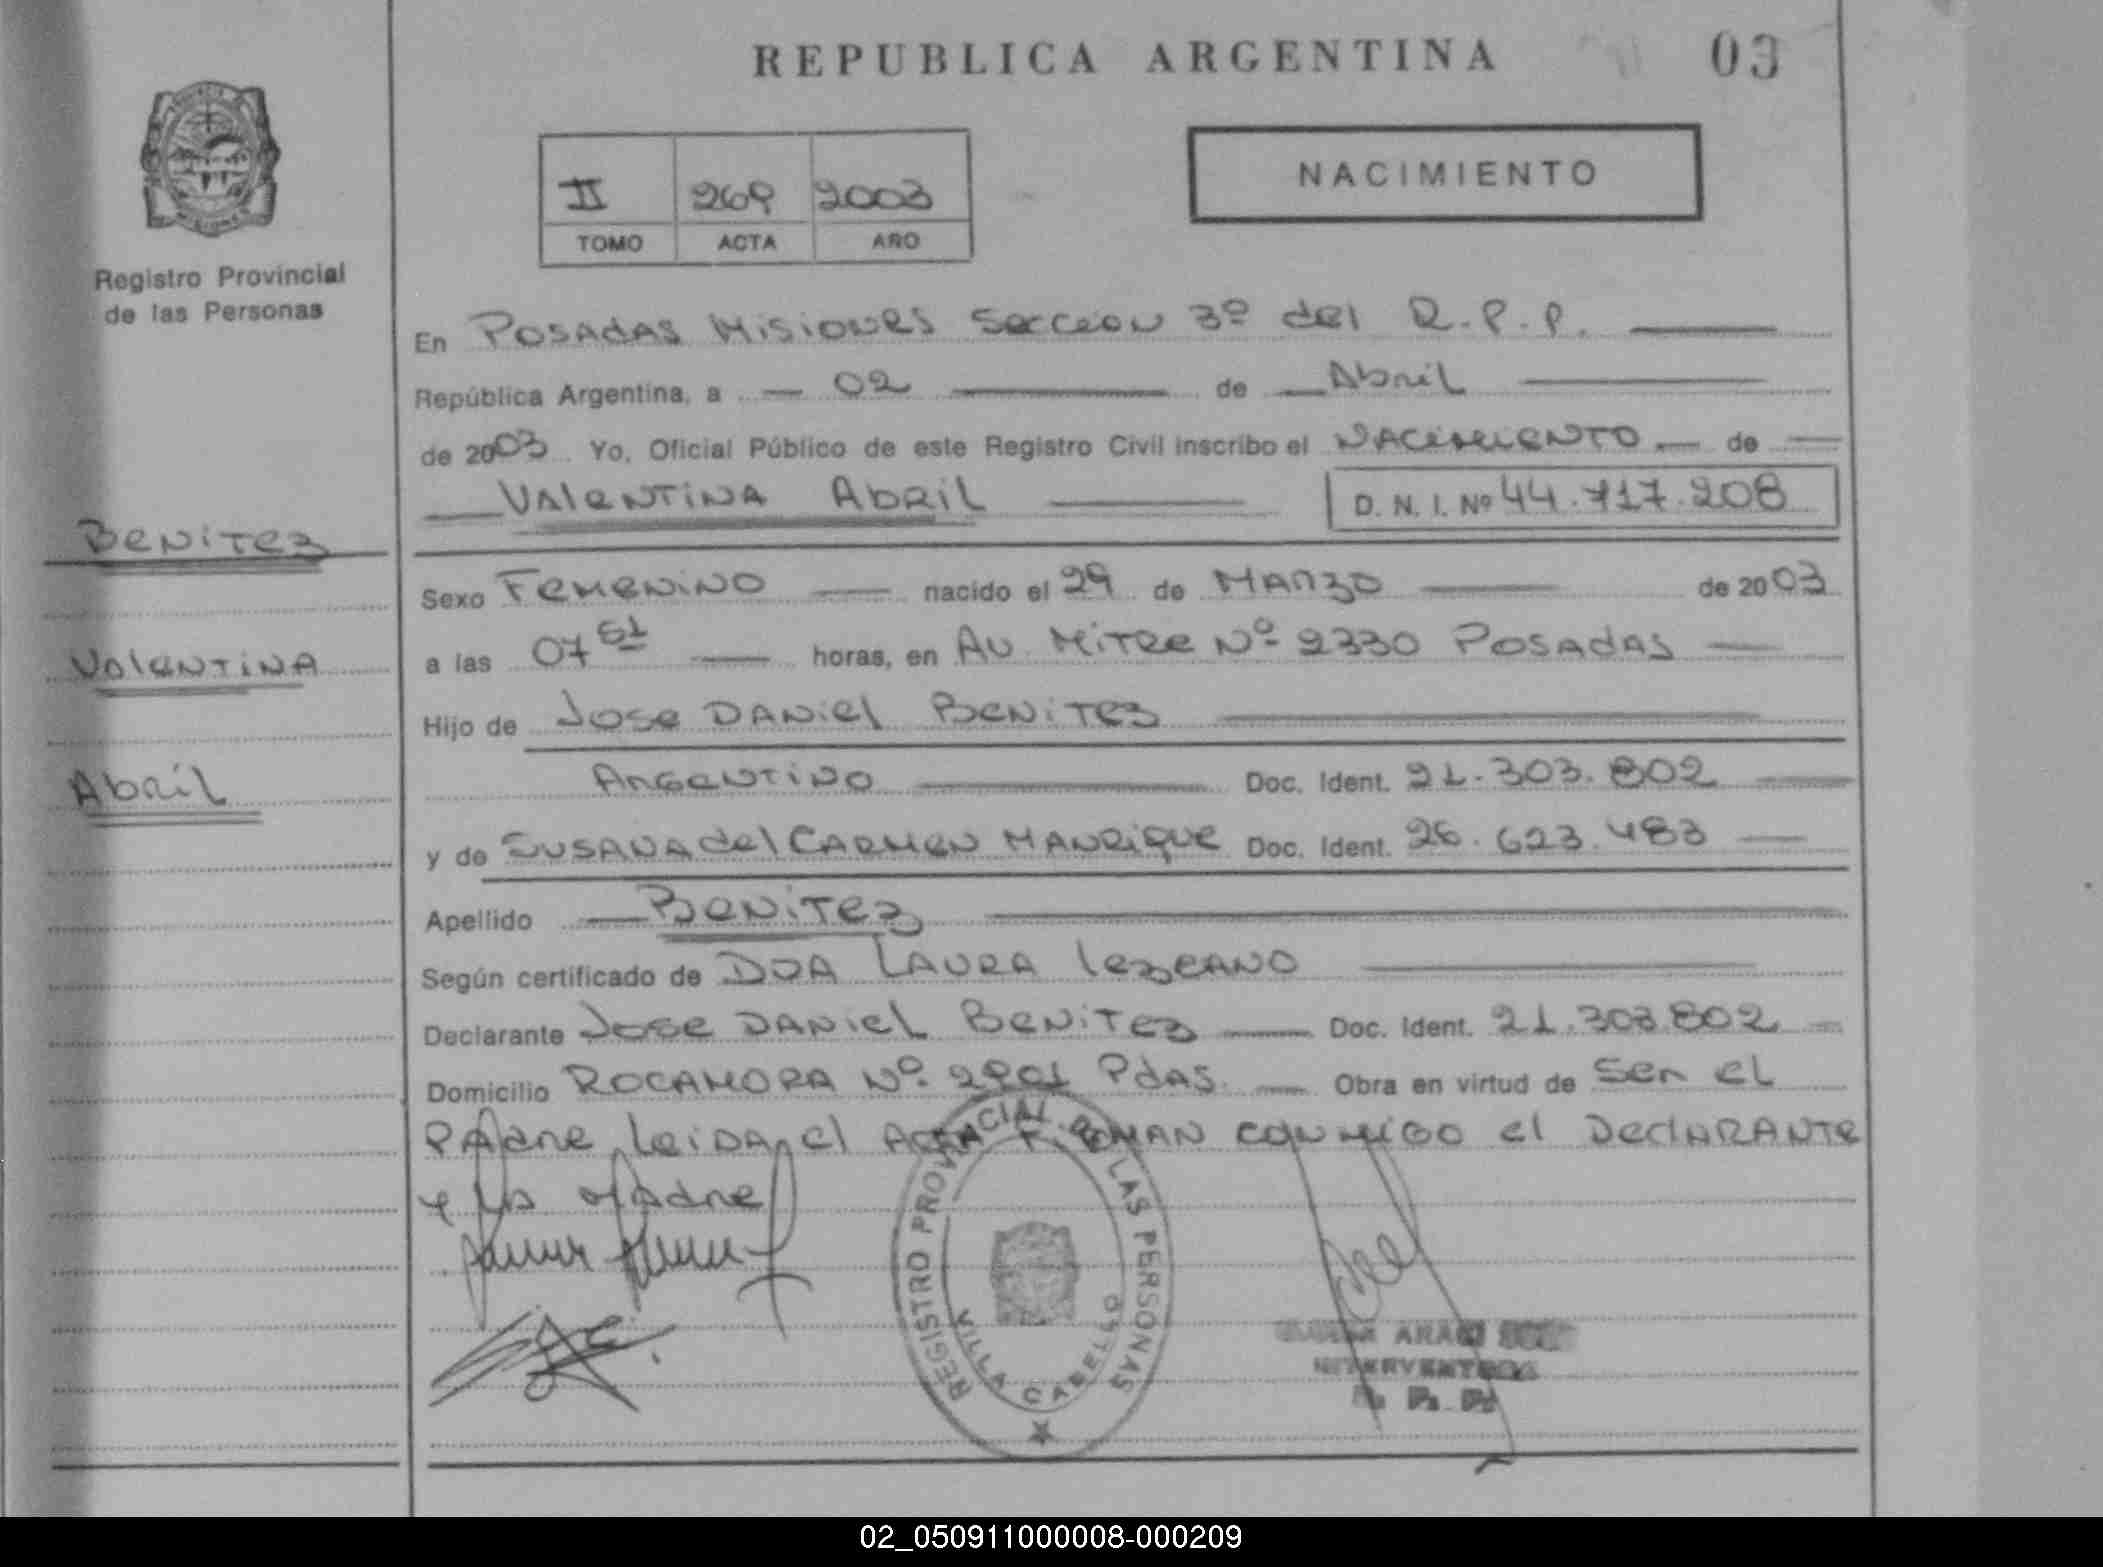 REPUBLICA ARGENTINA
03
II 269 2003
TOMO ACTA AÑO
NACIMIENTO
Registro Provincial
de las Personas
En Posadas Misiones Seccion 3º del R.P.P.
República Argentina, a 02 de Abril
de 2003 Yo, Oficial Público de este Registro Civil inscribo el Nacimiento de
Valentina Abril D. N. I. Nº 44.717.208
Benitez
Valentina
Abril
Sexo Femenino nacido el 29 de Marzo de 2003
a las 07 51 horas, en Av Mitre Nº 2330 Posadas
Hijo de Jose Daniel Benitez
Argentino Doc. Ident. 21.303.802
y de Susana del Carmen Manrique Doc. Ident. 26.623.483
Apellido Benitez
Según certificado de Dra Laura Lezcano
Declarante Jose Daniel Benitez Doc. Ident. 21.303.802
Domicilio Rocamora Nº 2901 Pdas. Obra en virtud de Ser el
Padre Leida el Acta Firman conmigo el Declarante
y la Madre
REGISTRO PROVINCIAL DE LAS PERSONAS
VILLA CABELLO
INTERVENTORA
R. P. P.
02_050911000008-000209